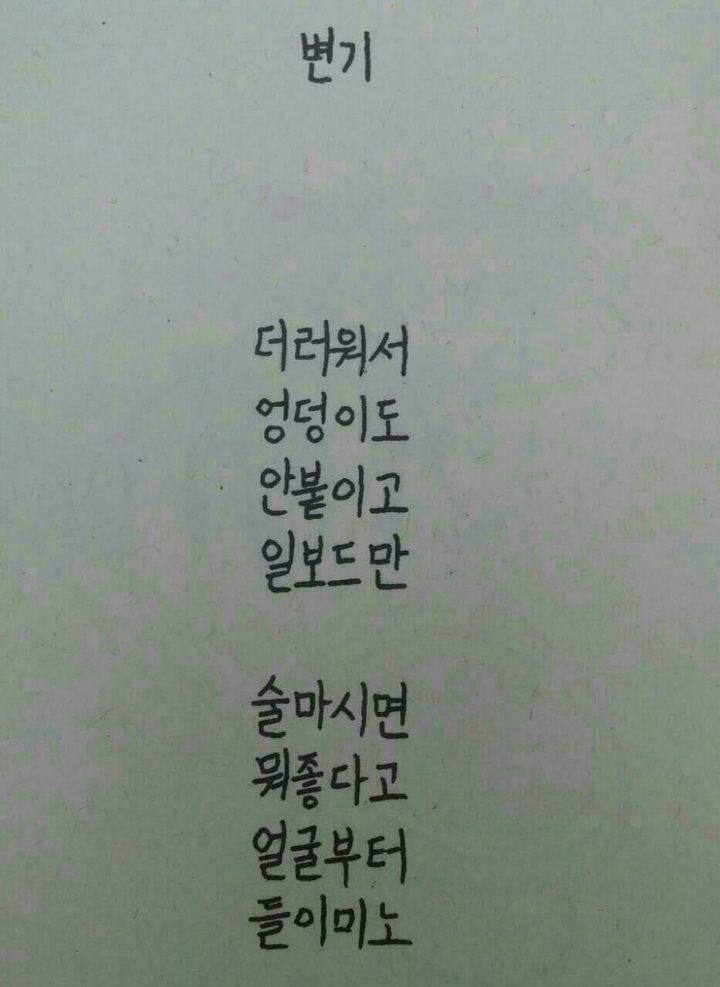 변기
더러워서
엉덩이도
안붙이고
일보드만
술마시면
뭐좋다고
얼굴부터
들이미노